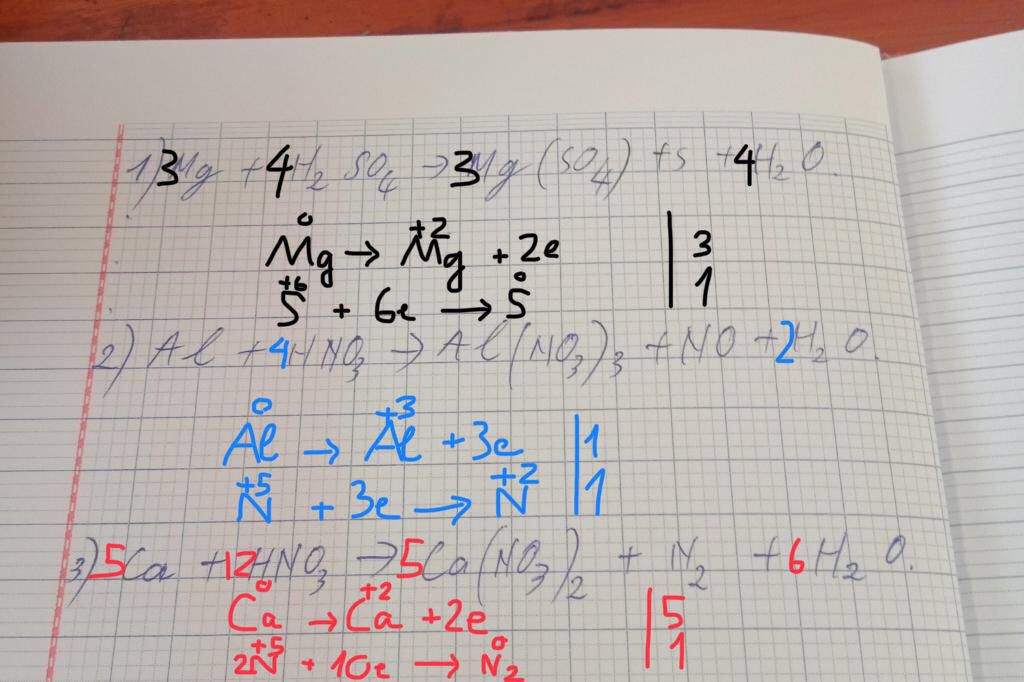 1) 3Mg + 4H₂SO₄ → 3Mg(SO₄) + S + 4H₂O.
⁰Mg → ⁺²Mg + 2e | 3
⁺⁶S + 6e → ⁰S | 1
2) Al + 4HNO₃ → Al(NO₃)₃ + NO + 2H₂O.
⁰Al → ⁺³Al + 3e | 1
⁺⁵N + 3e → ⁺²N | 1
3) 5Ca + 12HNO₃ → 5Ca(NO₃)₂ + N₂ + 6H₂O.
⁰Ca → ⁺²Ca + 2e | 5
2⁺⁵N + 10e → ⁰N₂ | 1